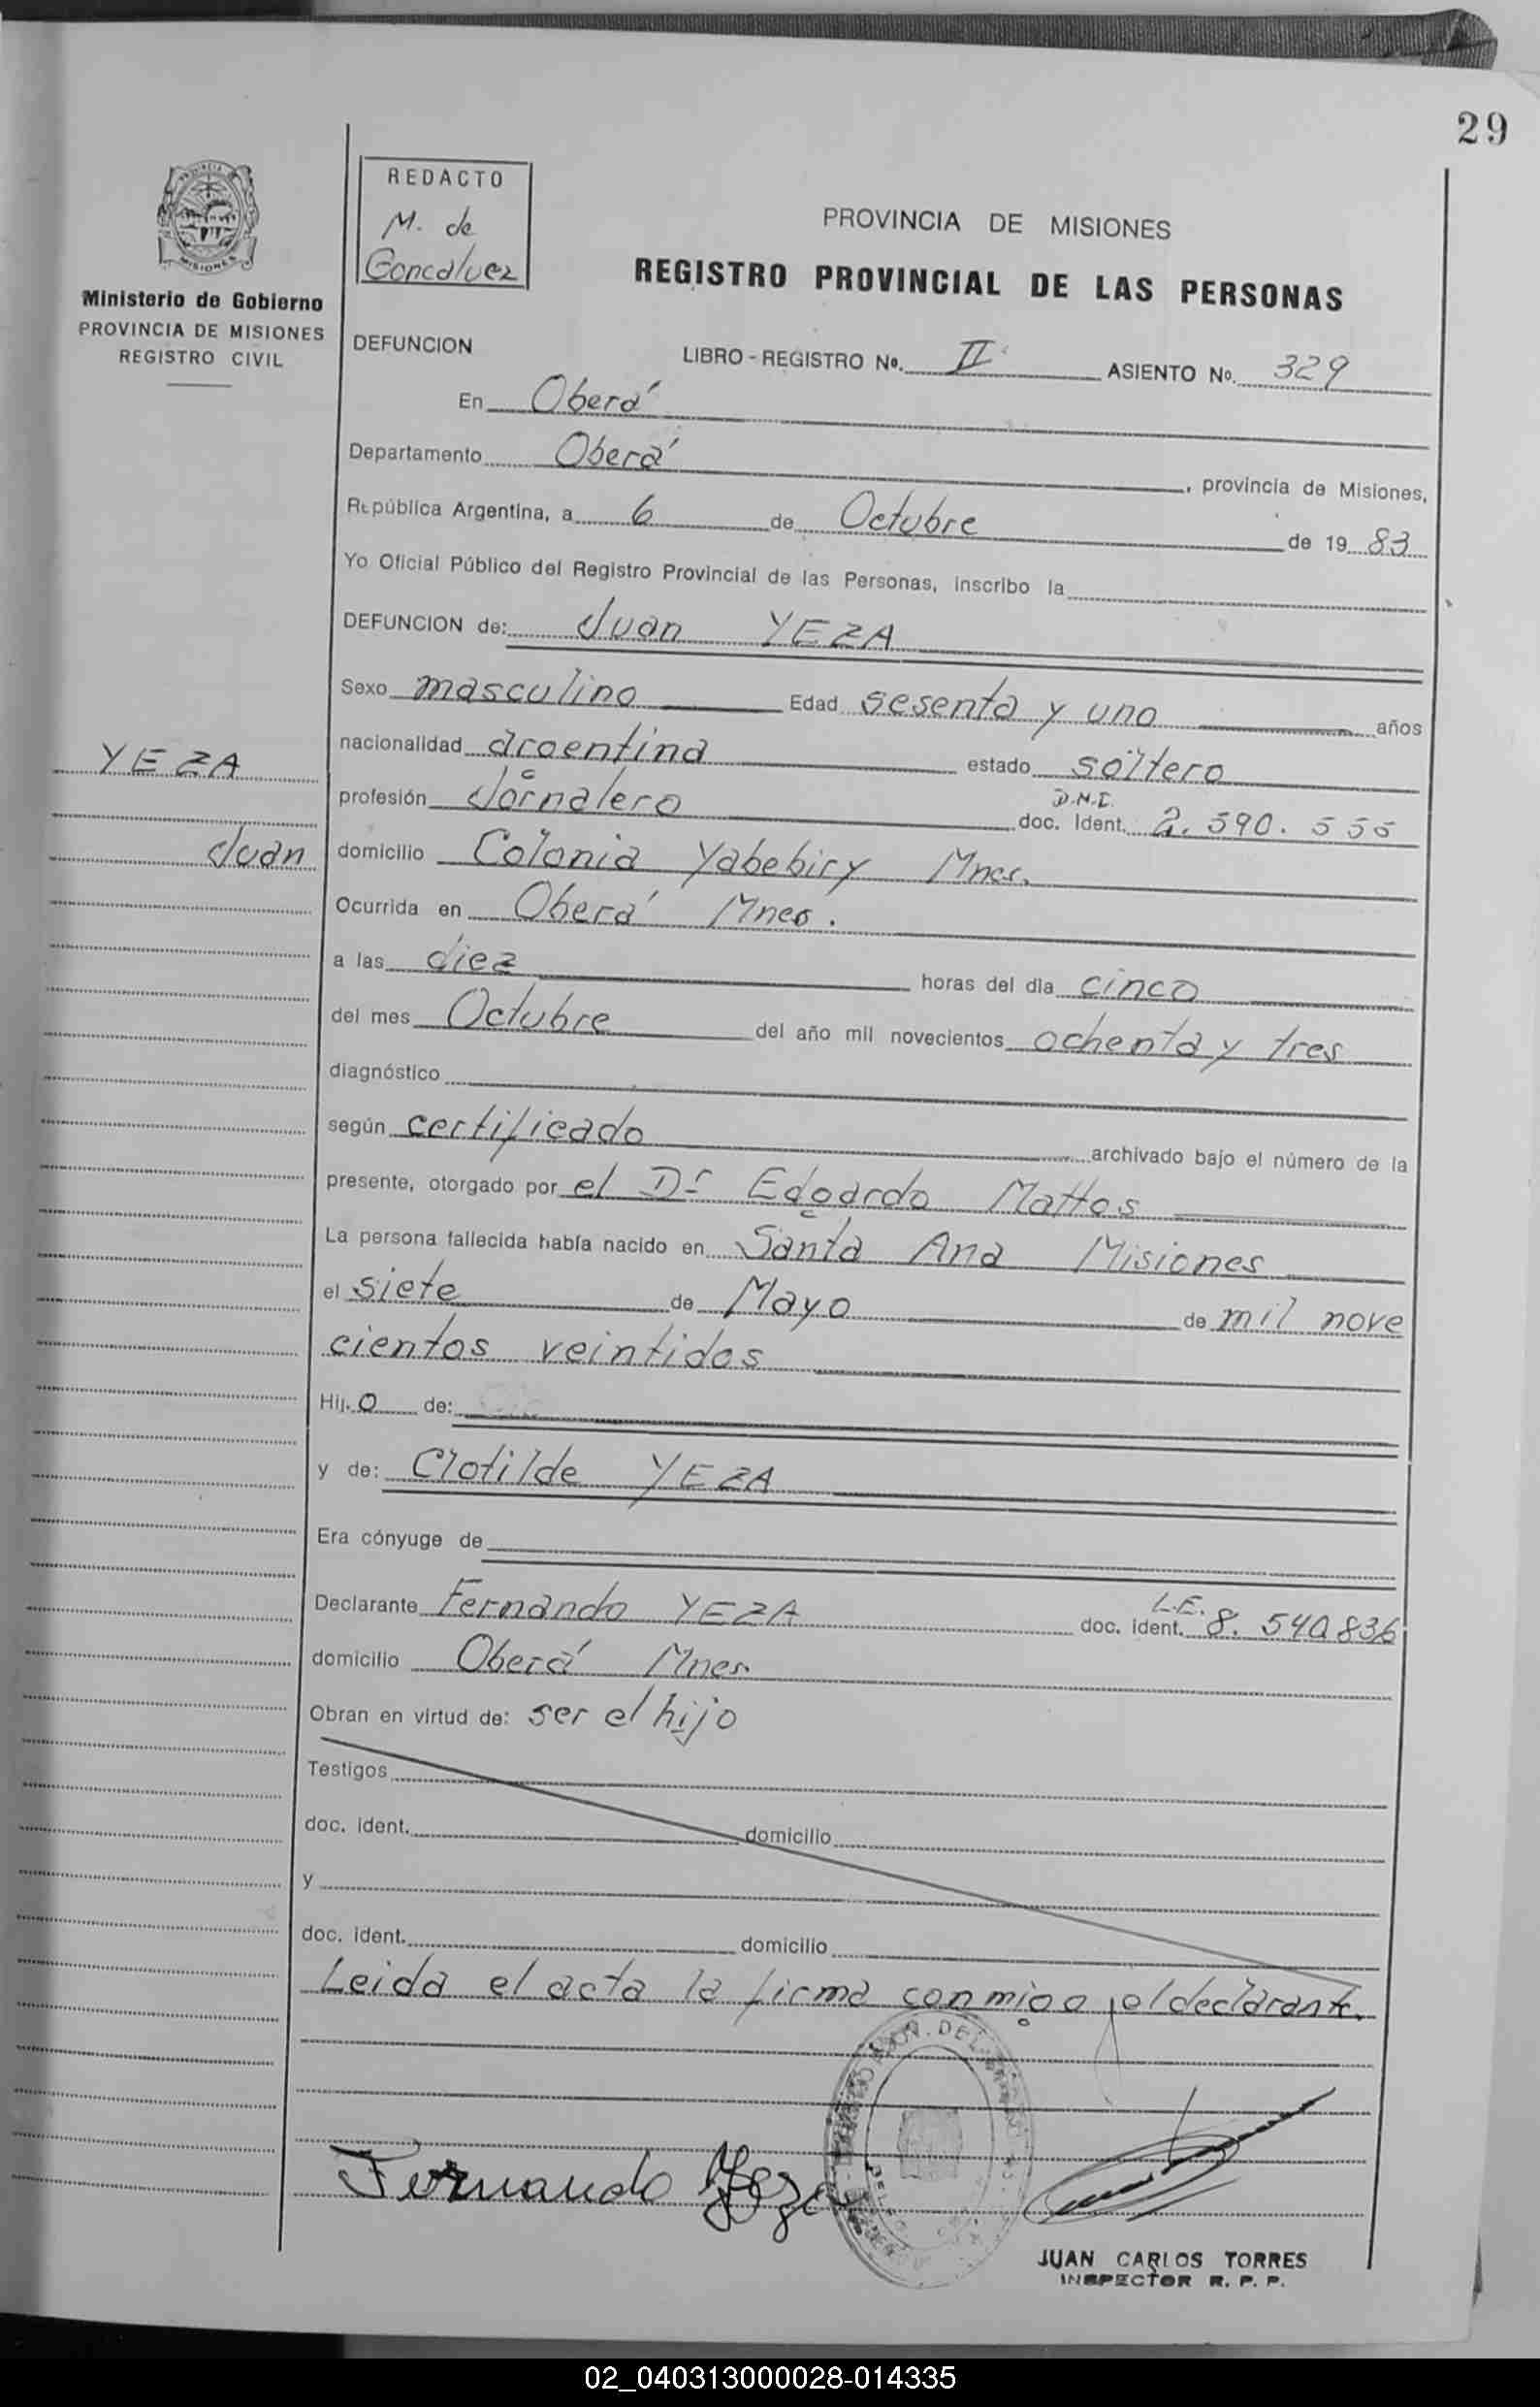 29
REDACTO
M. de
Goncalvez
PROVINCIA DE MISIONES
REGISTRO PROVINCIAL DE LAS PERSONAS
PROVINCIA
MISIONES
Ministerio de Gobierno
PROVINCIA DE MISIONES
REGISTRO CIVIL
DEFUNCION LIBRO - REGISTRO Nº. II ASIENTO Nº. 329
En Oberá
Departamento Oberá , provincia de Misiones,
República Argentina, a 6 de Octubre de 19 83
Yo Oficial Público del Registro Provincial de las Personas, inscribo la
DEFUNCION de: Juan YEZA
Sexo masculino Edad sesenta y uno años
YEZA
Juan
nacionalidad argentina estado soltero
profesión Jornalero D.N.I. doc. Ident. 2.590.555
domicilio Colonia Yabebiry Mnes.
Ocurrida en Oberá Mnes.
a las diez horas del día cinco
del mes Octubre del año mil novecientos ochenta y tres
diagnóstico
según certificado archivado bajo el número de la
presente, otorgado por el Dr Edgardo Mattos
La persona fallecida había nacido en Santa Ana Misiones
el siete de Mayo de mil nove
cientos veintidos
Hij. o de:
y de: Clotilde YEZA
Era cónyuge de
Declarante Fernando YEZA L.E. doc. ident. 8.540.836
domicilio Oberá Mnes
Obran en virtud de: ser el hijo
Testigos
doc. ident. domicilio
y
doc. ident. domicilio
Leida el acta la firma conmigo el declarante.
Fernando Yeza
JUAN CARLOS TORRES
INSPECTOR R. P. P.
02_040313000028-014335